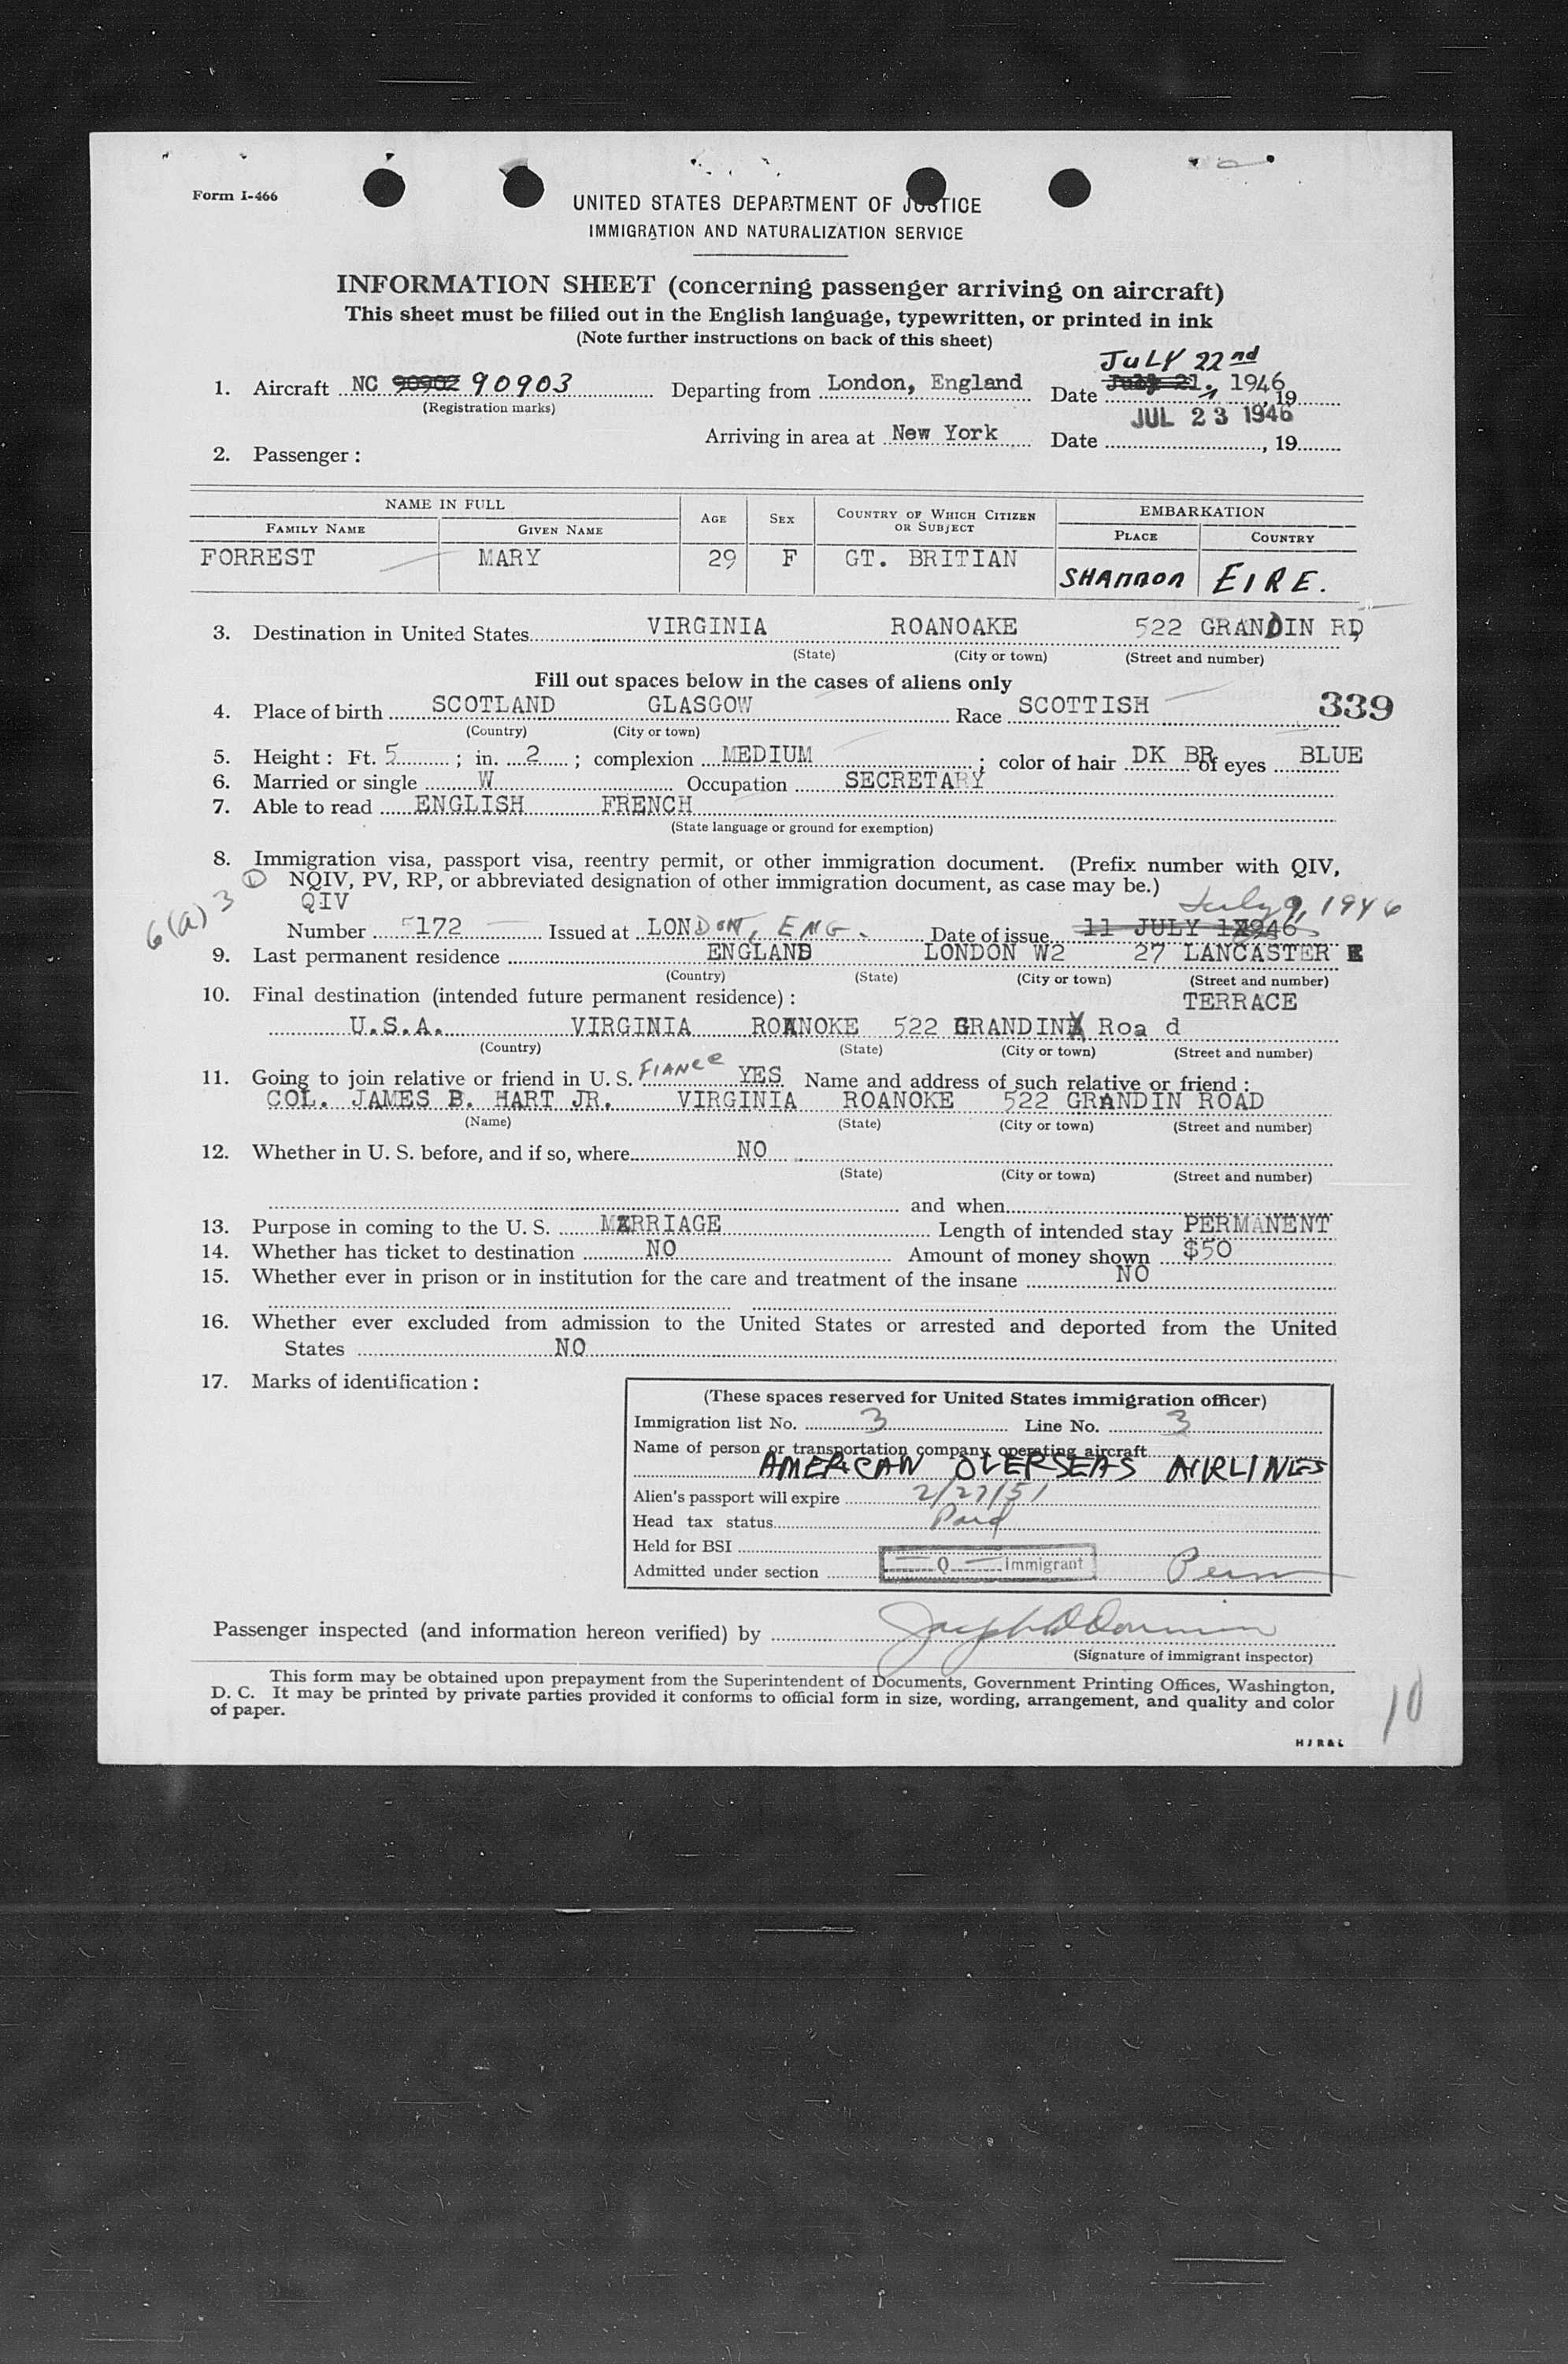 Form I-466
UNITED STATES DEPARTMENT OF JUSTICE
IMMIGRATION AND NATURALIZATION SERVICE
INFORMATION SHEET (concerning passenger arriving on aircraft)
This sheet must be filled out in the English language, typewritten, or printed in ink
(Note further instructions on back of this sheet)
JULY 22nd
1. Aircraft NC 90902 90903 Departing from London, England Date July 21, 1946, 19
(Registration marks)
JUL 23 1946
Arriving in area at New York Date , 19
2. Passenger:
NAME IN FULL AGE SEX COUNTRY OF WHICH CITIZEN OR SUBJECT EMBARKATION
FAMILY NAME GIVEN NAME PLACE COUNTRY
FORREST MARY 29 F GT. BRITIAN SHANNON EIRE.
3. Destination in United States VIRGINIA ROANOAKE 522 GRANDIN RD
(State) (City or town) (Street and number)
Fill out spaces below in the cases of aliens only
4. Place of birth SCOTLAND GLASGOW Race SCOTTISH 339
(Country) (City or town)
5. Height: Ft. 5; in. 2; complexion MEDIUM; color of hair DK BR of eyes BLUE
6. Married or single W Occupation SECRETARY
7. Able to read ENGLISH FRENCH
(State language or ground for exemption)
8. Immigration visa, passport visa, reentry permit, or other immigration document. (Prefix number with QIV,
NQIV, PV, RP, or abbreviated designation of other immigration document, as case may be.)
6(a) 3 QIV July 9, 1946
Number 5172 Issued at LONDON, ENG. Date of issue 11 JULY 1946
9. Last permanent residence ENGLAND LONDON W2 27 LANCASTER
(Country) (State) (City or town) (Street and number)
10. Final destination (intended future permanent residence): TERRACE
U.S.A. VIRGINIA ROANOKE 522 GRANDIN Roa d
(Country) (State) (City or town) (Street and number)
11. Going to join relative or friend in U. S. FIANCE YES Name and address of such relative or friend:
COL. JAMES B. HART JR. VIRGINIA ROANOKE 522 GRANDIN ROAD
(Name) (State) (City or town) (Street and number)
12. Whether in U. S. before, and if so, where NO
(State) (City or town) (Street and number)
and when
13. Purpose in coming to the U. S. MARRIAGE Length of intended stay PERMANENT
14. Whether has ticket to destination NO Amount of money shown $50
15. Whether ever in prison or in institution for the care and treatment of the insane NO
16. Whether ever excluded from admission to the United States or arrested and deported from the United
States NO
17. Marks of identification:
(These spaces reserved for United States immigration officer)
Immigration list No. 3 Line No. 3
Name of person or transportation company operating aircraft
AMERICAN OVERSEAS AIRLINES
Alien's passport will expire 2/27/51
Head tax status Paid
Held for BSI
Admitted under section Q Immigrant Perm
Passenger inspected (and information hereon verified) by
(Signature of immigrant inspector)
This form may be obtained upon prepayment from the Superintendent of Documents, Government Printing Offices, Washington,
D. C. It may be printed by private parties provided it conforms to official form in size, wording, arrangement, and quality and color
of paper.
10
HJR&L